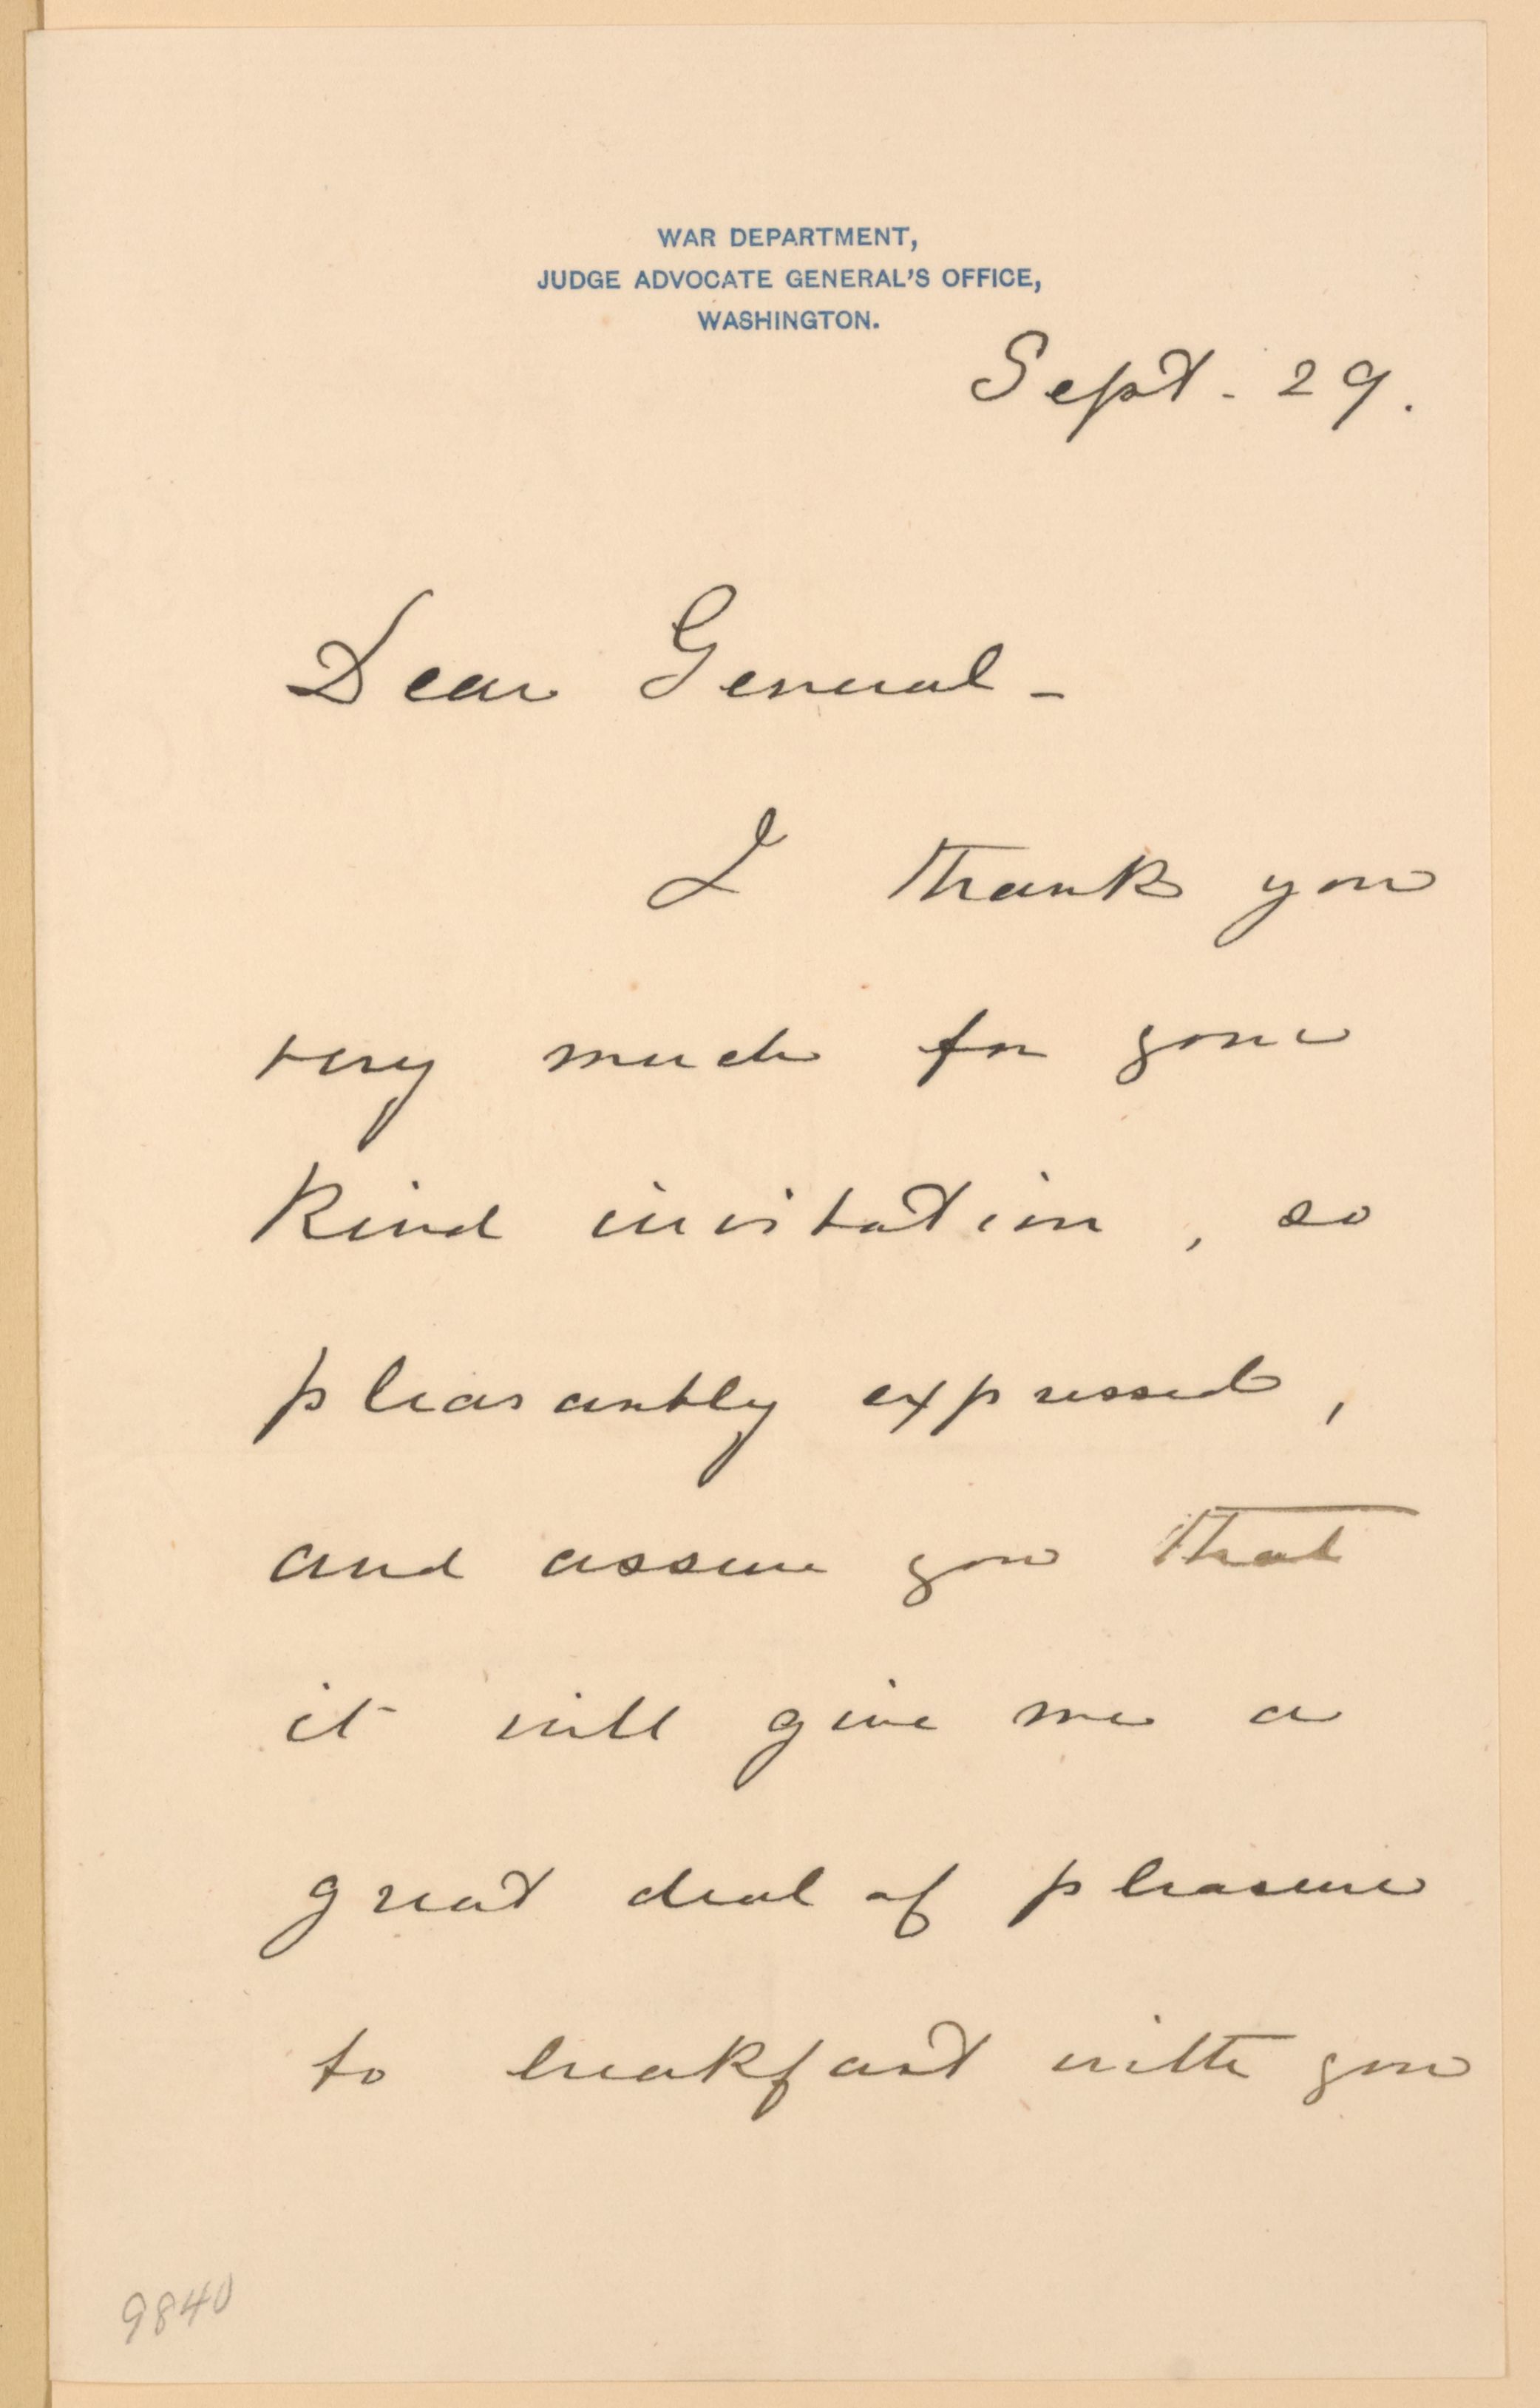 WAR DEPARTMENT,
JUDGE ADVOCATE GENERAL'S OFFICE,
WASHINGTON.
Sept. 29.
Dear General -
I thank you
very much for your
kind invitation, so
pleasantly expressed,
and assure you that
it will give me a
great deal of pleasure
to breakfast with you
9840